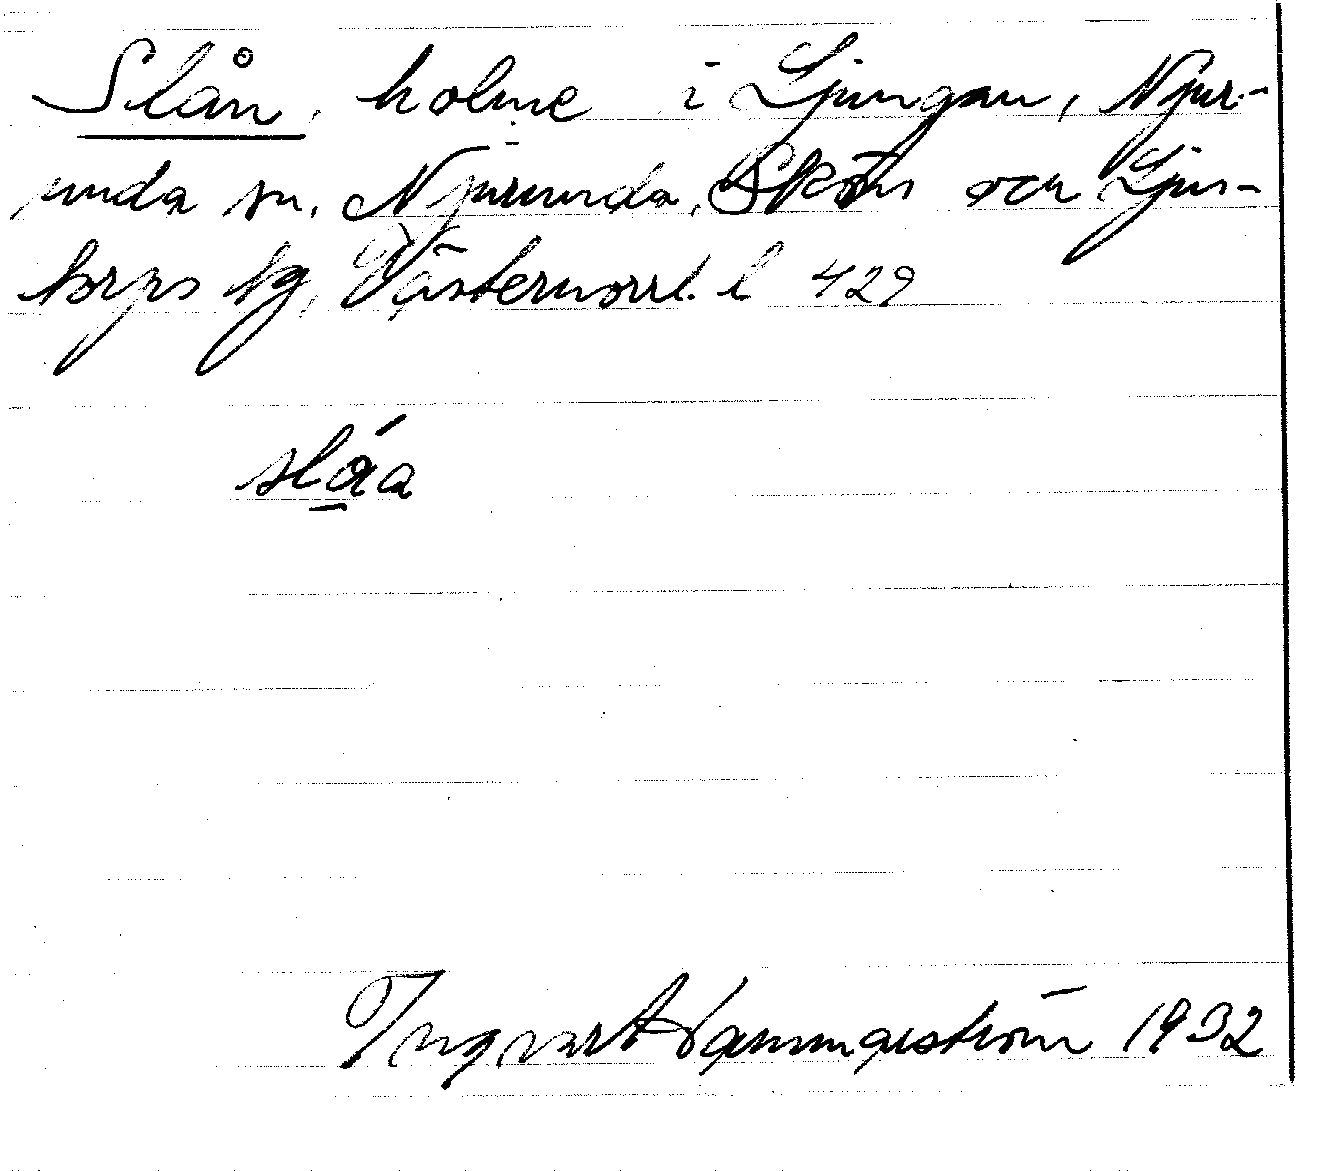 Slån, holme i Ljungan, Njur-
unda sn, Njurunda, Sköns och Ljus-
torps tg, Västernorrl. l 429
slåa
Ingvar Hammarström 1932